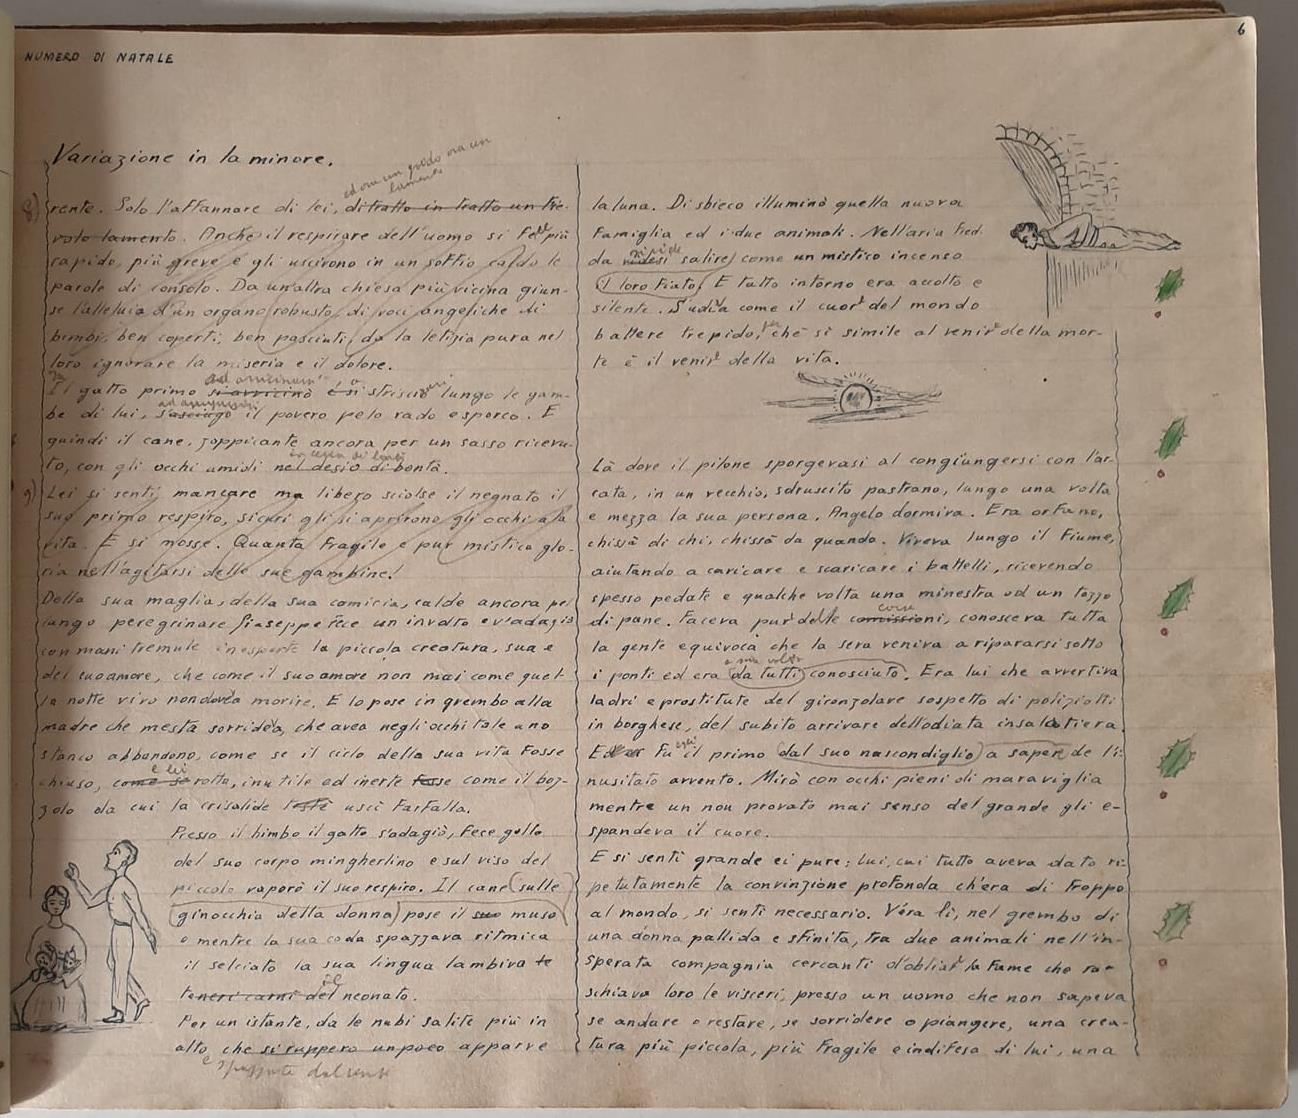 NUMERO DI NATALE
6
Variazione in la minore.
ed ora un grido ora un
lamento
8)
rente. Solo l'affannare di lei, di tratto in tratto un fie-
volo lamento. Anche il respirare dell'uomo si fe' più
rapido, più greve e gli uscirono in un soffio caldo le
parole di consolo. Da un'altra chiesa più vicina giun-
se l'alleluia d'un organo robusto, di voci angeliche di
bimbi, ben coperti, ben pasciuti, da la letizia pura nel
loro ignorare la miseria e il dolore.
Il gatto primo si avvicinò e si strisciò lungo le gam-
be di lui, s'asciugò il povero pelo rado e sporco. E
quindi il cane, zoppicante ancora per un sasso ricevu-
to, con gli occhi umidi nel desio di bontà.
9)
Lei si sentì mancare ma libero sciolse il neonato il
suo primo respiro, sicuri gli si aprirono gli occhi a la
vita. E si mosse. Quanta fragile e pur mistica glo-
ria nell'agitarsi delle sue gambine!
Della sua maglia, della sua camicia, calde ancora pel
lungo peregrinare Giuseppe fece un involto e v'adagiò
con mani tremule inesperte la piccola creatura, sua e
del suo amore, che come il suo amore non mai come quel-
la notte vivo non dovea morire. E lo pose in grembo alla
madre che mesta sorridea, che avea negli occhi tale uno
stanco abbandono, come se il ciclo della sua vita fosse
chiuso, come se rotta, inutile ed inerte fosse come il boz-
e lei
zolo da cui la crisalide testè uscì farfalla.
Presso il bimbo il gatto s'adagiò, fece gallo
del suo corpo mingherlino e sul viso del
piccolo vaporò il suo respiro. Il cane sulle
ginocchia della donna pose il suo muso
e mentre la sua coda spazzava ritmica
il selciato la sua lingua lambiva te
teneri carni del neonato.
il
Per un istante, da le nubi salite più in
alto, che si ruppero un poco apparve
e spazzate dal vento
la luna. Di sbieco illuminò quella nuova
famiglia ed i due animali. Nell'aria fred-
da videsi salire come un mistico incenso
il loro fiato. E tutto intorno era accolto e
silente. S'udìa come il cuor del mondo
battere trepido, chè sì simile al venir della mor-
te è il venir della vita.
Là dove il pilone sporgevasi al congiungersi con l'ar-
cata, in un vecchio, sdruscito pastrano, lungo una volta
e mezza la sua persona, Angelo dormiva. Era orfano,
chissà di chi, chissà da quando. Viveva lungo il fiume,
aiutando a caricare e scaricare i battelli, ricevendo
spesso pedate e qualche volta una minestra od un tozzo
di pane. Faceva pur delle commissioni, conosceva tutta
corse
la gente equivoca che la sera veniva a ripararsi sotto
i ponti ed era da tutti conosciuto. Era lui che avvertiva
a sua volta
ladri e prostitute del gironzolare sospetto di poliziotti
in borghese, del subito arrivare dell'odiata insalatiera.
E fu il primo dal suo nascondiglio a sapere de l'i-
egli
nusitato avvento. Mirò con occhi pieni di maraviglia
mentre un non provato mai senso del grande gli e-
spandeva il cuore.
E si sentì grande ei pure; lui, cui tutto aveva dato ri-
petutamente la convinzione profonda ch'era di troppo
al mondo, si sentì necessario. V'era lì, nel grembo di
una donna pallida e sfinita, tra due animali nell'in-
sperata compagnia cercanti d'obliar la fame che ra-
schiava loro le visceri, presso un uomo che non sapeva
se andare o restare, se sorridere o piangere, una crea-
tura più piccola, più fragile e indifesa di lui, una